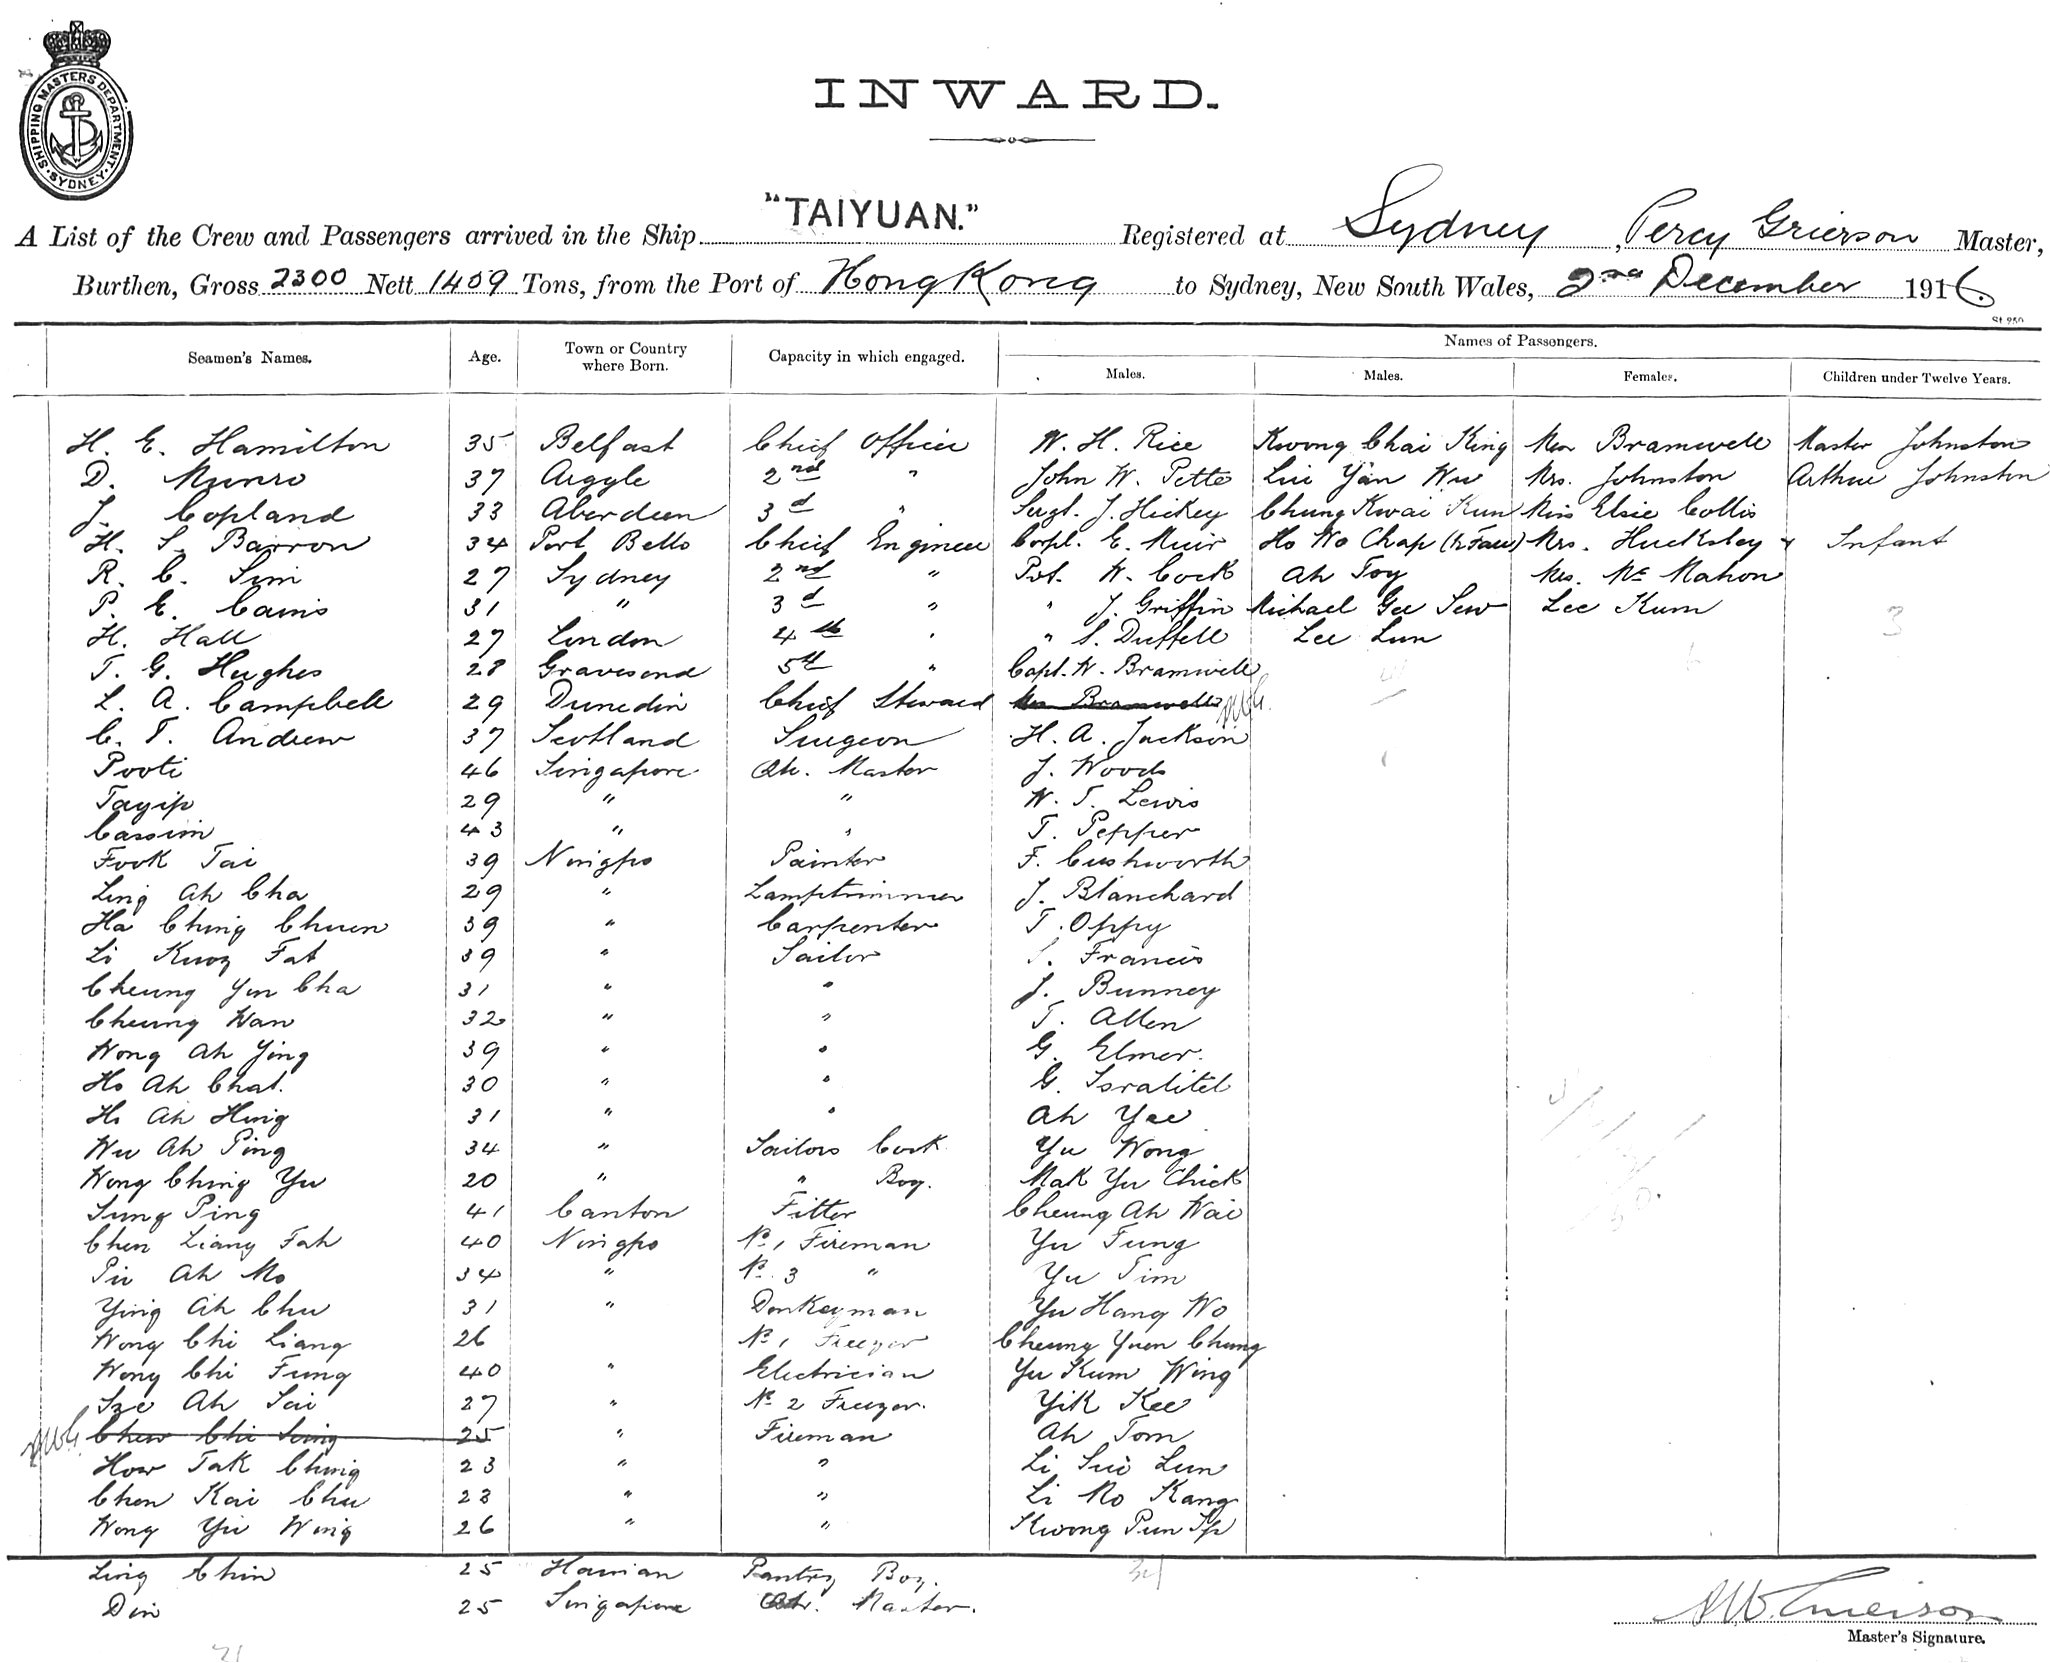 SHIPPING MASTERS DEPARTMENT. SYDNEY
INWARD.
A List of the Crew and Passengers arrived in the Ship "TAIYUAN." Registered at Sydney, Percy Grierson Master,
Burthen, Gross 2300 Nett 1459 Tons, from the Port of Hong Kong to Sydney, New South Wales, 2nd December 1916.
St. 250
Seamen's Names. Age. Town or Country where Born. Capacity in which engaged. Names of Passengers.
Males. Males. Females. Children under Twelve Years.
H. E. Hamilton 35 Belfast Chief Officer W. H. Rice Kwong Chai King Mrs Bramwell Master Johnston
D. Munro 37 Argyle 2nd " John W. Pette Lui Yan Wu Mrs. Johnston Arthur Johnston
J. Copland 33 Aberdeen 3d " Sergt. J. Hickey Chung Kwai Kun Miss Elsie Collis
H. S. Barron 34 Port Bello Chief Engineer Corpl. E. Muir Ho Wo Chap Mrs. Hucksley & Infant
R. C. Sim 27 Sydney 2nd " Pvt. W. Cock Ah Toy Mrs. McMahon
P. E. Cains 31 " 3d " " J. Griffin Michael Gee Sew Lee Kum
H. Hall 27 London 4th " " S. Duffell Lee Lun 3
T. G. Hughes 28 Gravesend 5th " Capt. W. Bramwell
L. A. Campbell 29 Dunedin Chief Steward Mrs Bramwell
C. T. Andrew 37 Scotland Surgeon H. A. Jackson
Pooti 46 Singapore Qr. Master J. Woods
Tayip 29 " " W. T. Lewis
Cassim 43 " " T. Pepper
Fook Tai 39 Ningpo Painter F. Cushworth
Ling Ah Cha 29 " Lamptrimmer J. Blanchard
Ha Ching Chuen 39 " Carpenter T. Oppy
Li Kwoz Fat 39 " Sailor S. Francis
Cheung Yun Cha 31 " " J. Bunney
Cheung Wan 32 " " T. Allen
Wong Ah Ying 39 " " G. Elmer.
Ho Ah Chat. 30 " " G. Isralitel
Ho Ah Hing 31 " " Ah Yee
Wu Ah Ping 34 " Sailors Cook Yu Wong
Wong Ching Yu 20 " " Boy. Mak Yu Chick
Sung Ping 41 Canton Fitter Cheung Ah Wai
Chen Liang Fah 40 Ningpo No. 1 Fireman Yu Tung
Piu Ah Mo 34 " No. 3 " Yu Tim
Ying Ah Chu 31 " Donkeyman Yu Hang Wo
Wong Chi Liang 26 No. 1 Freezer Cheung Yuen Chung
Wong Chi Fung 40 " Electrician Yu Kum Wing
Sze Ah Sai 27 " No. 2 Freezer. Yik Kee
Chew Chi Sing 25 " Fireman Ah Tom
How Tak Ching 23 " " Li Sui Lun
Chen Kai Chu 23 " " Li Mo Kang
Wong Yu Wing 26 " " Kwong Pun Ip
Ling Chin 25 Hainan Pantry Boy. 34
Din 25 Singapore Qr. Master.
Master's Signature.